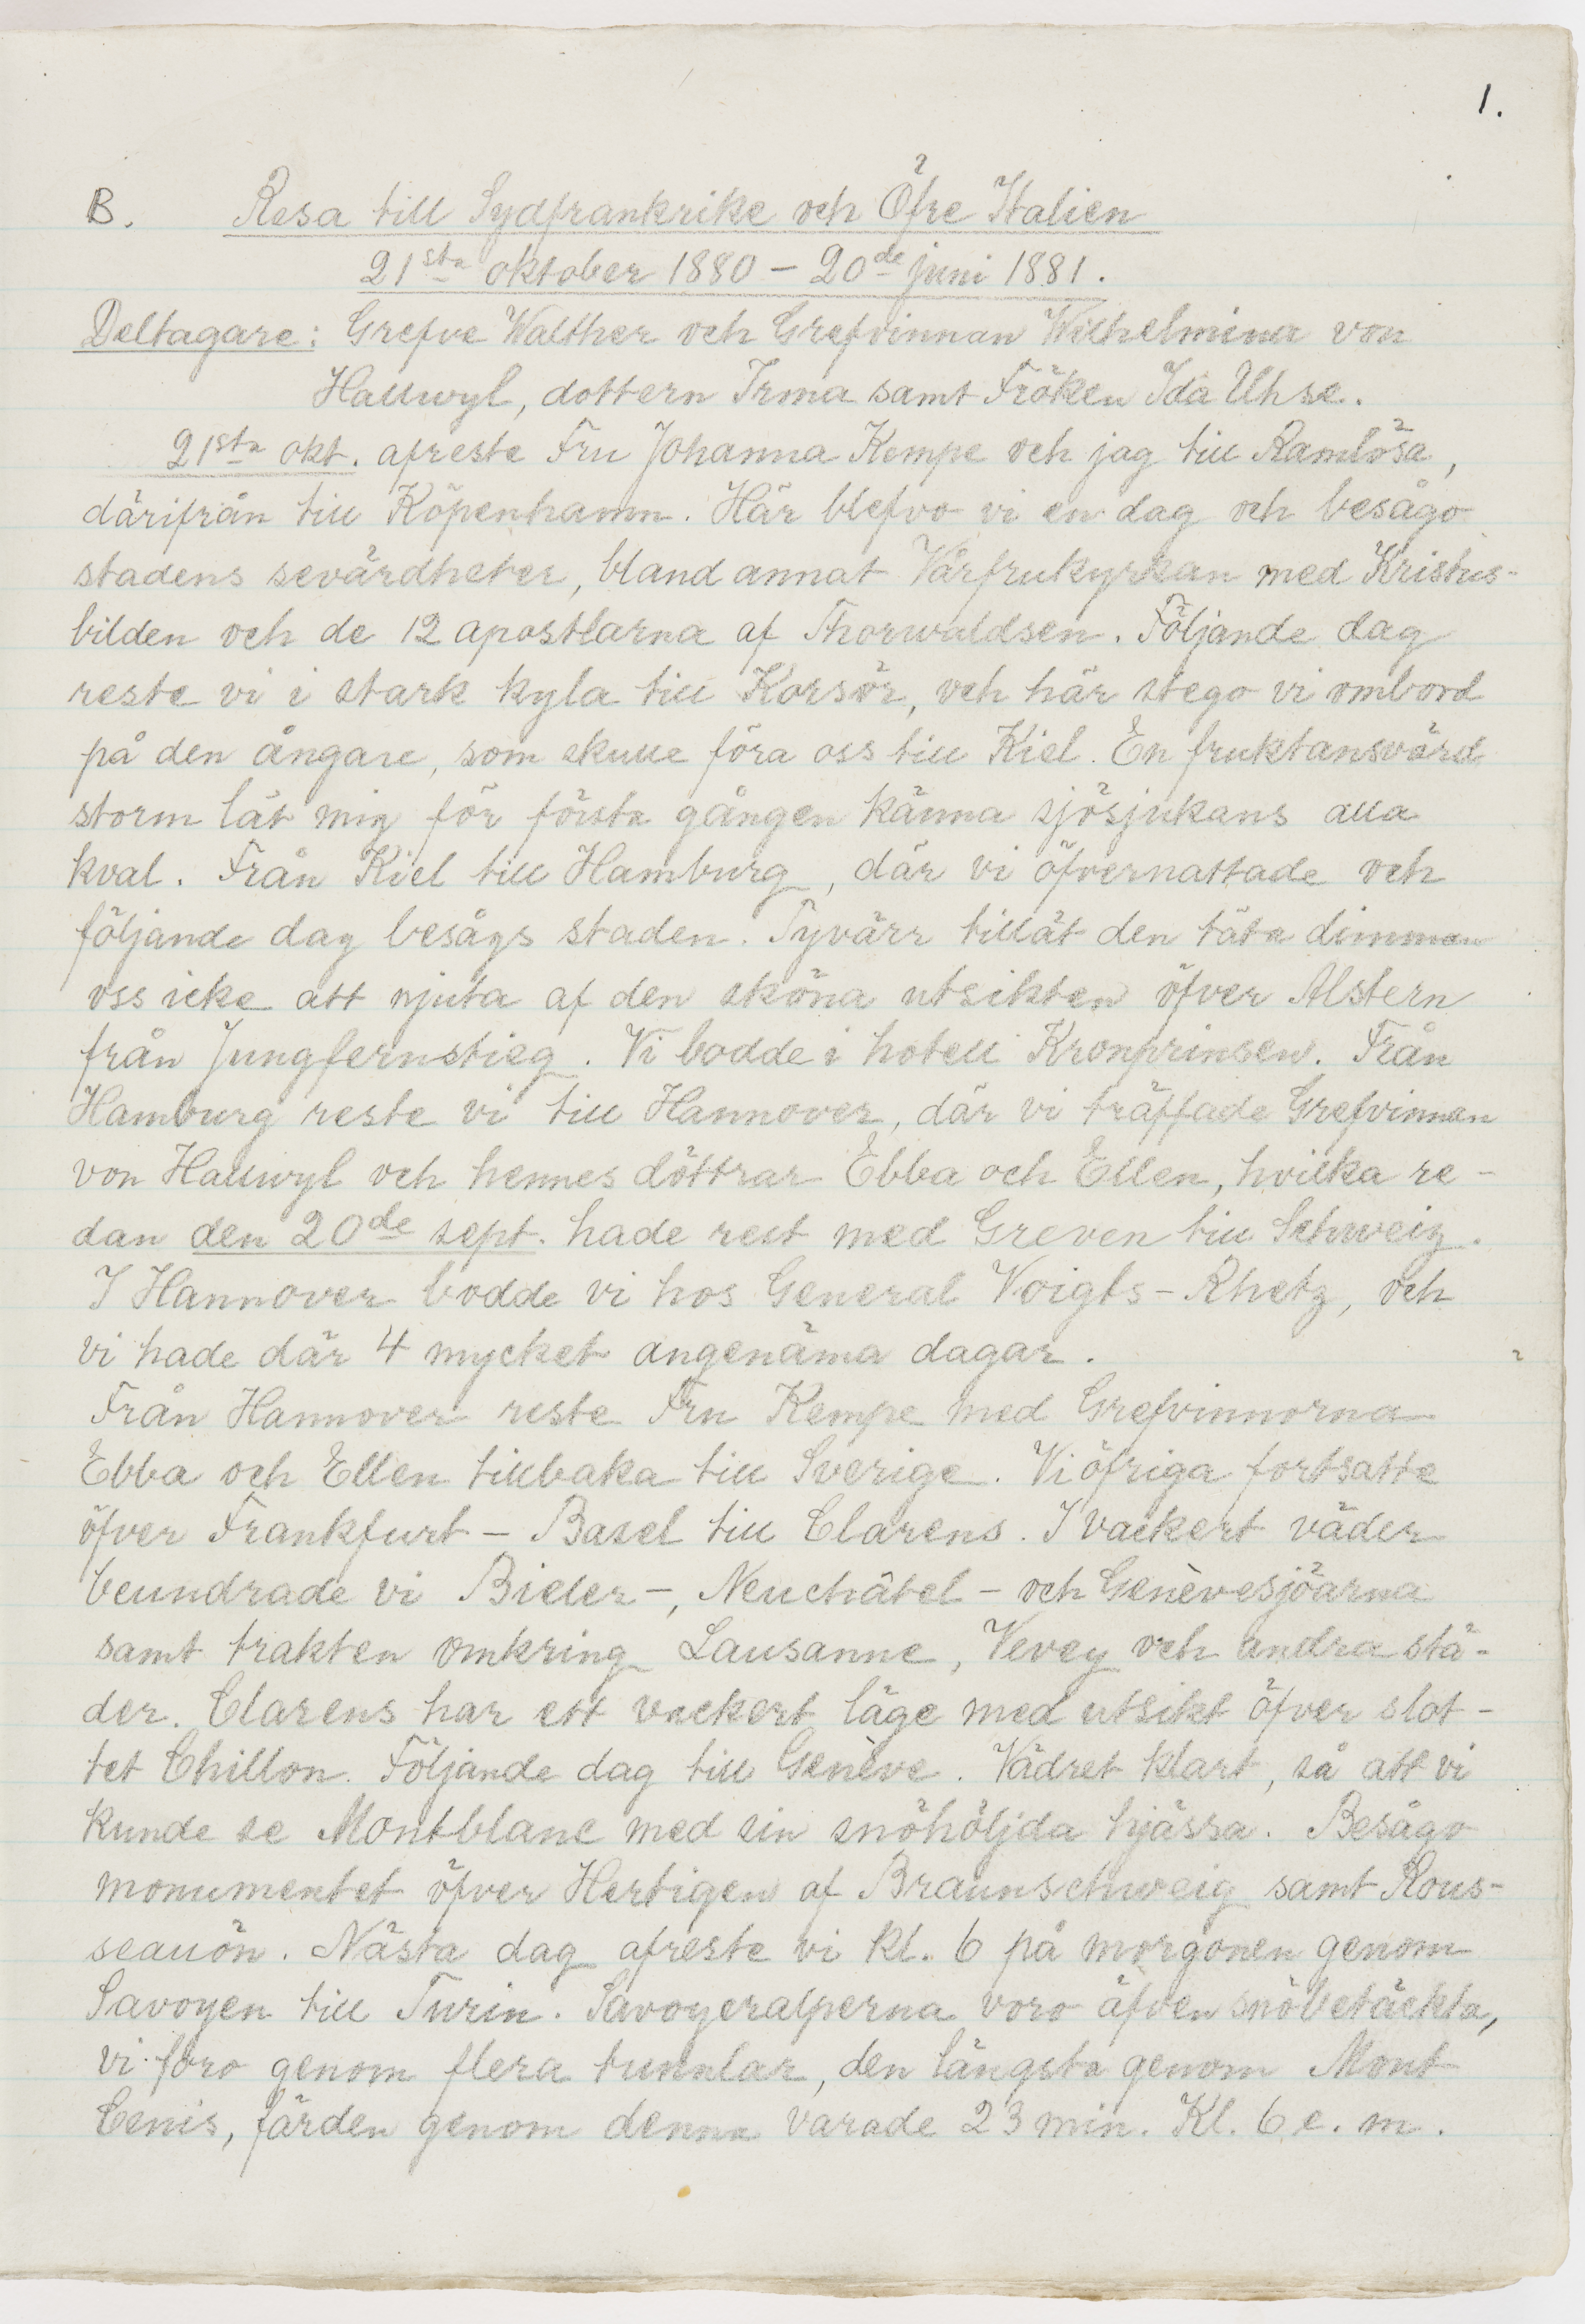 1.
B. Resa till Sydfrankrike och Öfre Italien
21sta oktober 1880 – 20de juni 1881.
Deltagare: Grefve Walther och Grefvinnan Wilhelmina von
Hallwyl, dottern Irma samt Fröken Ida Uhse.
21sta okt. afreste Fru Johanna Kempe och jag till Ramlösa,
därifrån till Köpenhamn. Här blefvo vi en dag och besågo
stadens sevärdheter, bland annat Vårfrukyrkan med Kristus-
bilden och de 12 apostlarna af Thorwaldsen. Följande dag
reste vi i stark kyla till Korsör, och här stego vi ombord
på den ångare, som skulle föra oss till Kiel. En fruktansvärd
storm lät mig för första gången känna sjösjukans alla
kval. Från Kiel till Hamburg, där vi öfvernattade och
följande dag besågs staden. Tyvärr tillät den täta dimman
oss icke att njuta af den sköna utsikten öfver Alstern
från Jungfernstieg. Vi bodde i hotell Kronprinsen. Från
Hamburg reste vi till Hannover, där vi träffade Grefvinnan
von Hallwyl och hennes döttrar Ebba och Ellen, hvilka re-
dan den 20de sept. hade rest med Greven till Schweiz.
I Hannover bodde vi hos General Voigts-Rhetz, och
vi hade där 4 mycket angenäma dagar.
Från Hannover reste Fru Kempe med Grefvinnorna
Ebba och Ellen tillbaka till Sverige. Vi öfriga fortsatte
öfver Frankfurt – Basel till Clarens. I vackert väder
beundrade vi Bieler-, Neuchâtel- och Genèvesjöarna
samt trakten omkring Lausanne, Vevey och andra stä-
der. Clarens har ett vackert läge med utsikt öfver slot-
tet Chillon. Följande dag till Genève. Vädret klart, så att vi
kunde se Montblanc med sin snöhöljda hjässa. Besågo
monumentet öfver Hertigen af Braunschweig samt Rous-
seauön. Nästa dag afreste vi kl. 6 på morgonen genom
Savoyen till Turin. Savoyeralperna voro äfven snöbetäckta,
vi foro genom flera tunnlar, den längsta genom Mont
Cenis, färden genom denna varade 23 min. Kl. 6 e. m.